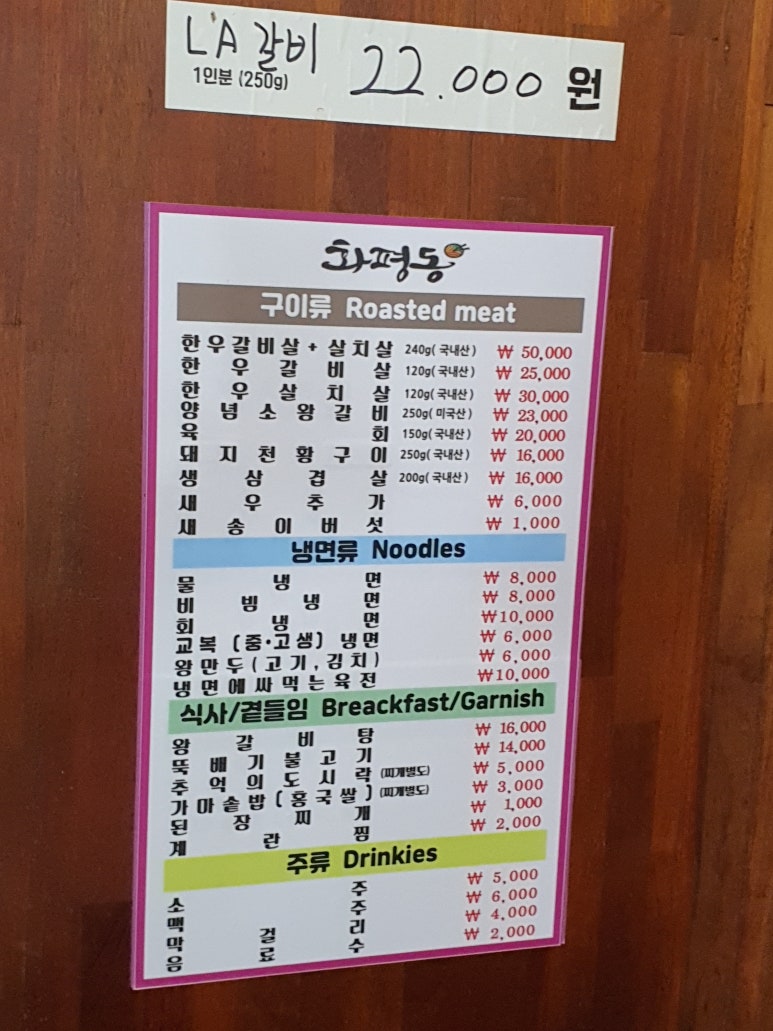 LA갈비
1인분 (250g) 22.000 원
화평동
구이류 Roasted meat
한우갈비살+살치살 240g(국내산) ₩ 50,000
한우갈비살 120g(국내산) ₩ 25,000
한우살치살 120g(국내산) ₩ 30,000
양념소왕갈비 250g(미국산) ₩ 23,000
육회 150g(국내산) ₩ 20,000
돼지천황구이 250g(국내산) ₩ 16,000
생삼겹살 200g(국내산) ₩ 16,000
새우추가 ₩ 6,000
새송이버섯 ₩ 1,000
냉면류 Noodles
물냉면 ₩ 8,000
비빔냉면 ₩ 8,000
회냉면 ₩10,000
교복(중·고생) 냉면 ₩ 6,000
왕만두(고기,김치) ₩ 6,000
냉면에싸먹는육전 ₩10,000
식사/곁들임 Breackfast/Garnish
왕갈비탕 ₩ 16,000
뚝배기불고기 ₩ 14,000
추억의도시락 (찌개별도) ₩ 5,000
가마솥밥(홍국쌀) (찌개별도) ₩ 3,000
된장찌개 ₩ 1,000
계란찜 ₩ 2,000
주류 Drinkies
소주 ₩ 5,000
맥주 ₩ 6,000
막걸리 ₩ 4,000
음료수 ₩ 2,000